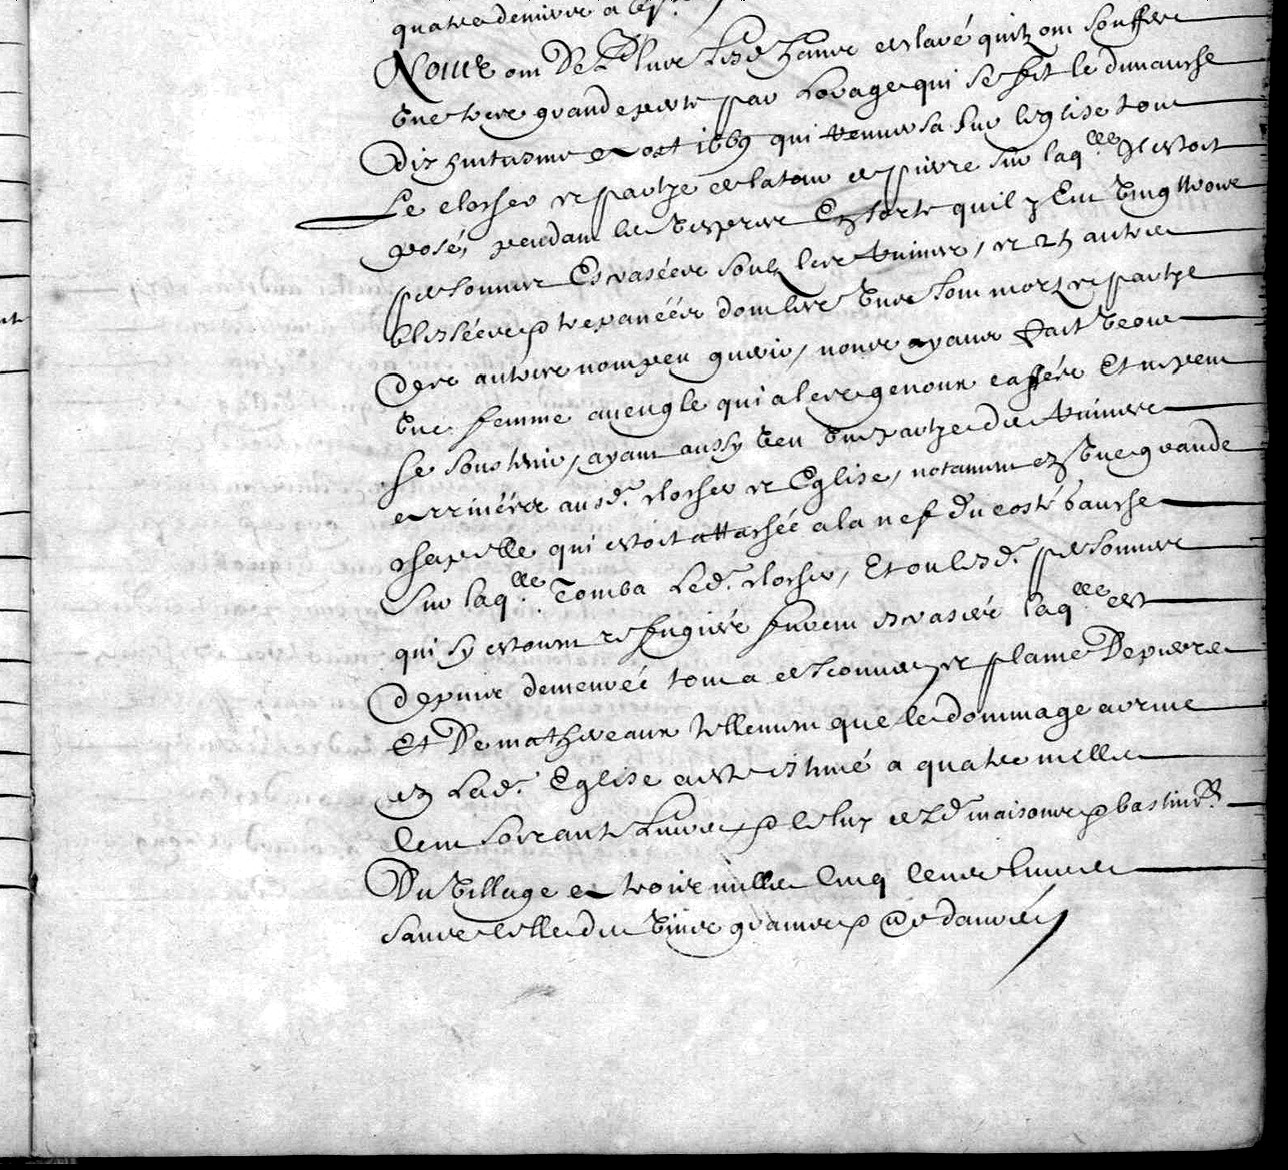 quatre deniers
Nous ont De Plus Lesd hans esclavé quilz ont souffert
Une tres grande perte par Lorage qui se fit le dimanche
Dix huitiesme aost 1669 qui renversa sur leglise tout
Le clocher et partye de la tour de pierre sur laqlle Il estoit
posé, pendant les Vespres En sorte quil y Eut Vingt trois
personnes Escraséees soubz les ruines, et 25 autres
blesséees & trepanéées dont les uns sont morz et partye
des autres non peu guerir, nous ayans fait Veoir
Une femme aveugle qui a les genoux casséz Et ne peut
se soustenir, ayant aussy Veu Une partye des ruines
arrivéés ausd. clocher et Eglise, notamment en Une grande
chapelle qui estoit attachée a la nef du costé bauche
Sur laqlle. Tomba Led. clocher, Et ou lesd. personnes
qui sy estoient refugiés furent escrasés laqlle est
depuis demeurée tout a descouvert et plaine De pierres
Et De mathereaux tellement que le dommage arrivé
en Lad. Eglise a esté estimé a quatre mille
Cent soixante Livres & celuy desd maisons & bastimens
Du Village a trois mille Cinq Cens livres
sans celles des Vins grains & danrées